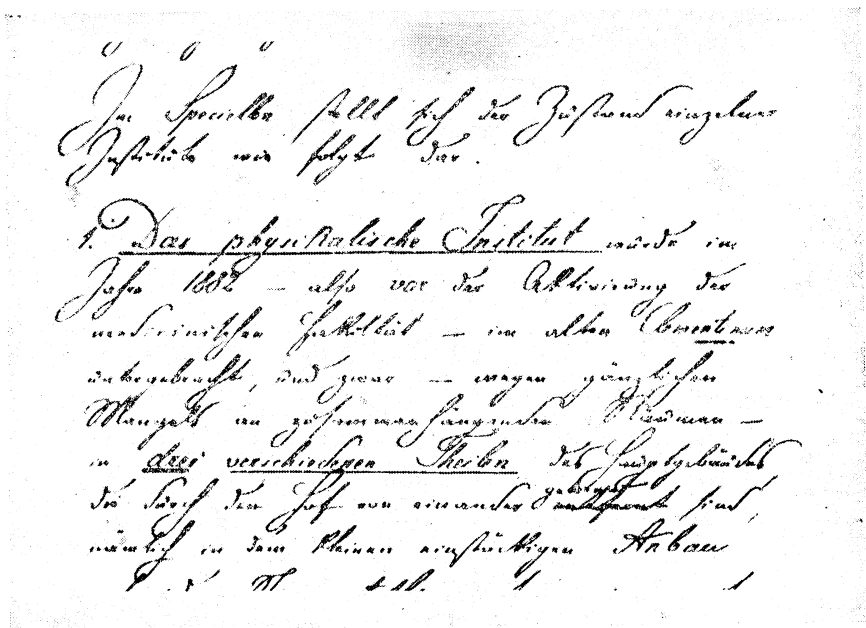 Im Speciellen stellt sich der Zustand einzelner
Institute wie folgt dar.
1. Das physikalische Institut wurde im
Jahre 1882 – also vor der Aktivierung der
medicinischen Fakultät – im alten Clementinum
untergebracht, und zwar – wegen gänzlichen
Mangels an zusammenhängenden Räumen –
in drei verschiedenen Theilen des Hauptgebäudes,
die durch den Hof von einander getrennt sind,
nämlich in dem kleinen einstöckigen Anbau